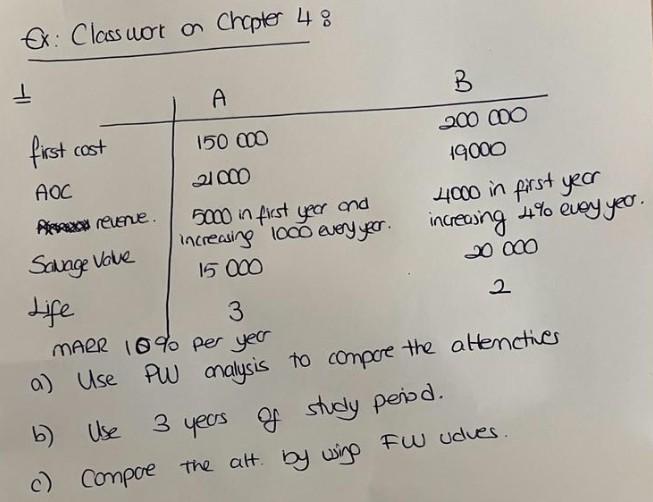 Ex: Classwork on Chapter 4:
1
A B
first cost 150 000 200 000
AOC 21000 19000
revenue. 5000 in first year and increasing 1000 every year. 4000 in first year increasing 4% every year.
Salvage Value 15 000 20 000
Life 3 2
MARR 10% per year
a) Use PW analysis to compare the alternatives
b) Use 3 years of study period.
c) Compare the alt. by using FW values.